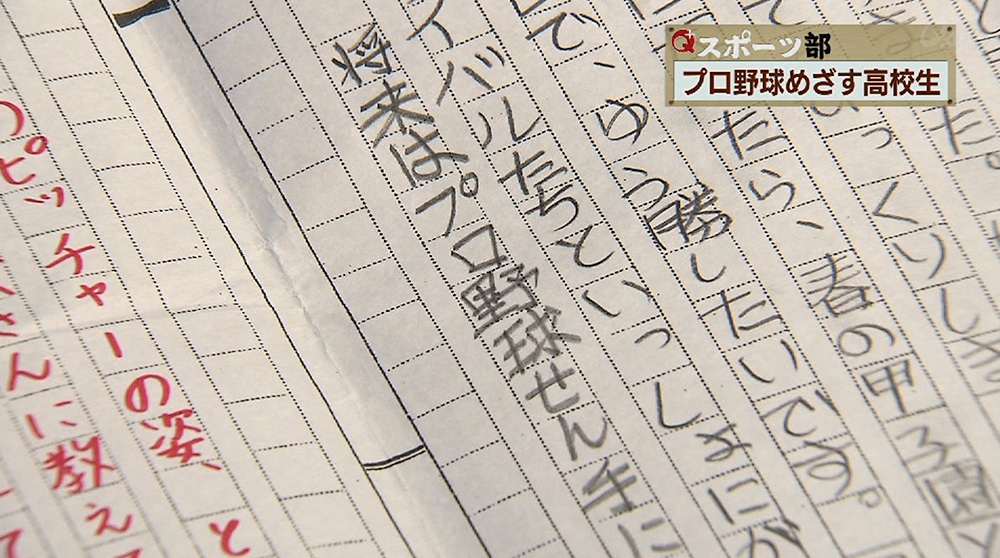 Q+スポーツ部
プロ野球めざす高校生
た。
っくりしま
たら、春の甲子園
で、ゆう勝したいです。
イバルたちといっしょにが
将来はプロ野球せん手に
ピッチャーの姿、と
さんに教えて